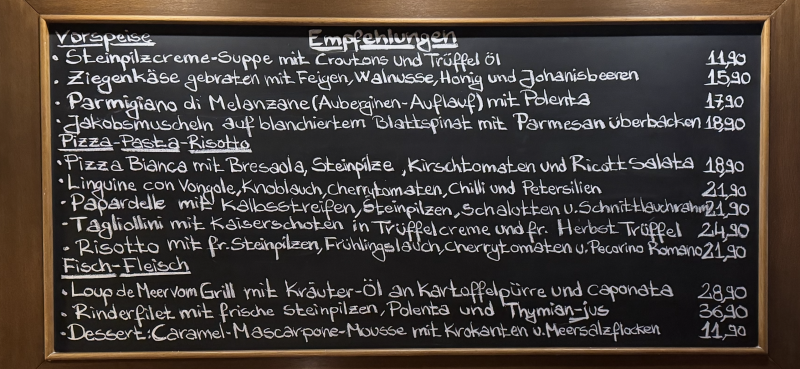 Vorspeise Empfehlungen
• Steinpilzcreme-Suppe mit Croutons und Trüffel öl 11,90
• Ziegenkäse gebraten mit Feigen, Walnusse, Honig und Johanisbeeren 15,90
• Parmigiano di Melanzane (Auberginen-Auflauf) mit Polenta 17,90
• Jakobsmuscheln auf blanchiertem Blattspinat mit Parmesan überbacken 18,90
Pizza-Pasta-Risotto
• Pizza Bianca mit Bresaola, Steinpilze, Kirschtomaten und Ricottsalata 18,90
• Linguine con Vongole, Knoblauch, Cherrytomaten, Chilli und Petersilien 21,90
• Papardelle mit Kalbsstreifen, Steinpilzen, Schalotten u. Schnittlauchrahm 21,90
• Tagliollini mit Kaiserschoten in Trüffelcreme und fr. Herbst Trüffel 24,90
• Risotto mit fr. Steinpilzen, Frühlingslauch, Cherrytomaten u. Pecorino Romano 21,90
Fisch-Fleisch
• Loup de Meer vom Grill mit Kräuter-Öl an Kartoffelpürre und caponata 28,90
• Rinderfilet mit frische steinpilzen, Polenta und Thymian-jus 36,90
• Dessert: Caramel-Mascarpone-Mousse mit Krokanten u. Meersalzflocken 11,90